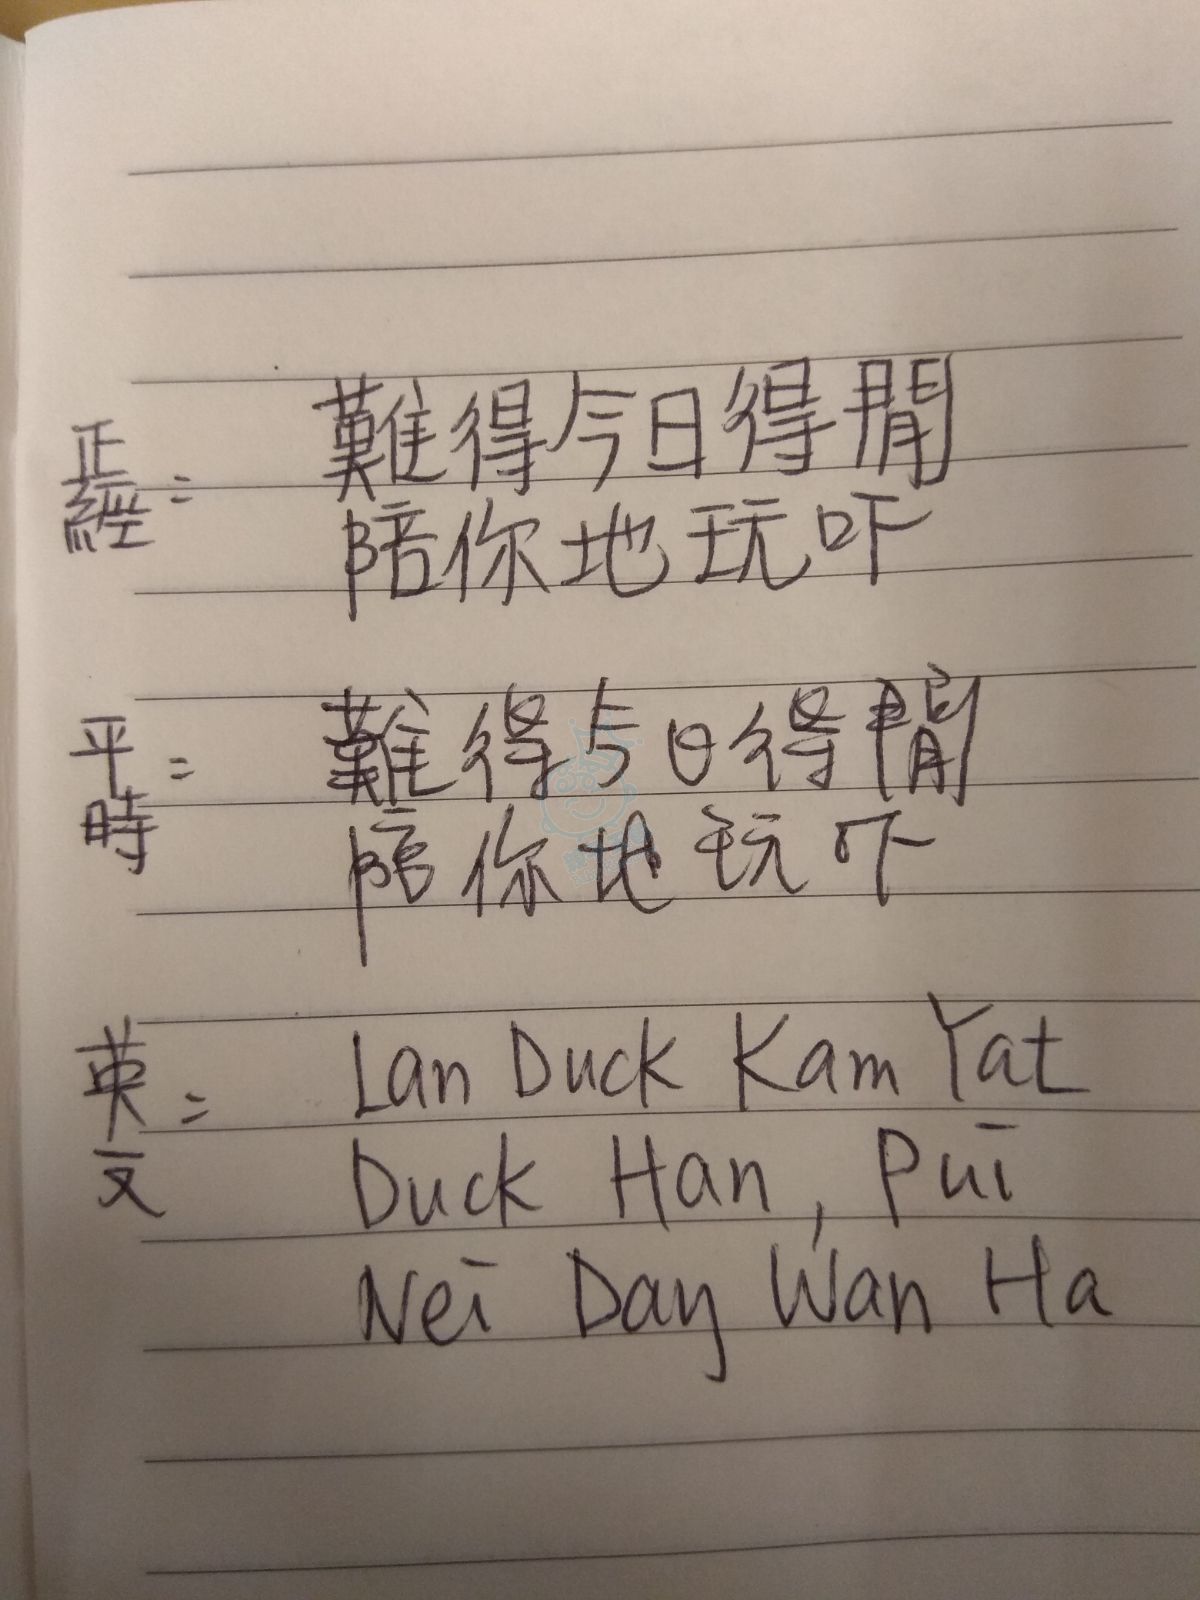 正經：難得今日得閒
陪你地玩吓
平時：難得今日得閒
陪你地玩吓
英文：Lan Duck Kam Yat
Duck Han, Pui
Nei Day Wan Ha